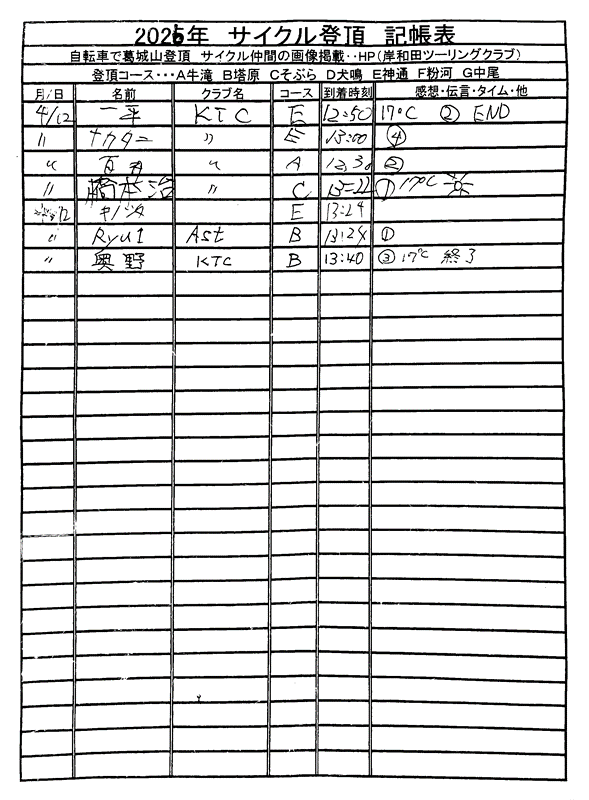 2026年 サイクル登頂 記帳表
自転車で葛城山登頂 サイクル仲間の画像掲載・・HP(岸和田ツーリングクラブ)
登頂コース・・・A牛滝 B塔原 Cそぶら D犬鳴 E神通 F粉河 G中尾
月/日 名前 クラブ名 コース 到着時刻 感想・伝言・タイム・他
4/12 一平 KTC E 12:50 17°C ② END
〃 ナカタニ 〃 E 13:00 ④
〃 〃 A 12,30 ②
〃 橋本治 〃 C 13-22 ① 17°C
12 E 13:24
〃 Ryu1 Ast B 13:24 ①
〃 奥野 KTC B 13:40 ③ 17°C 終了